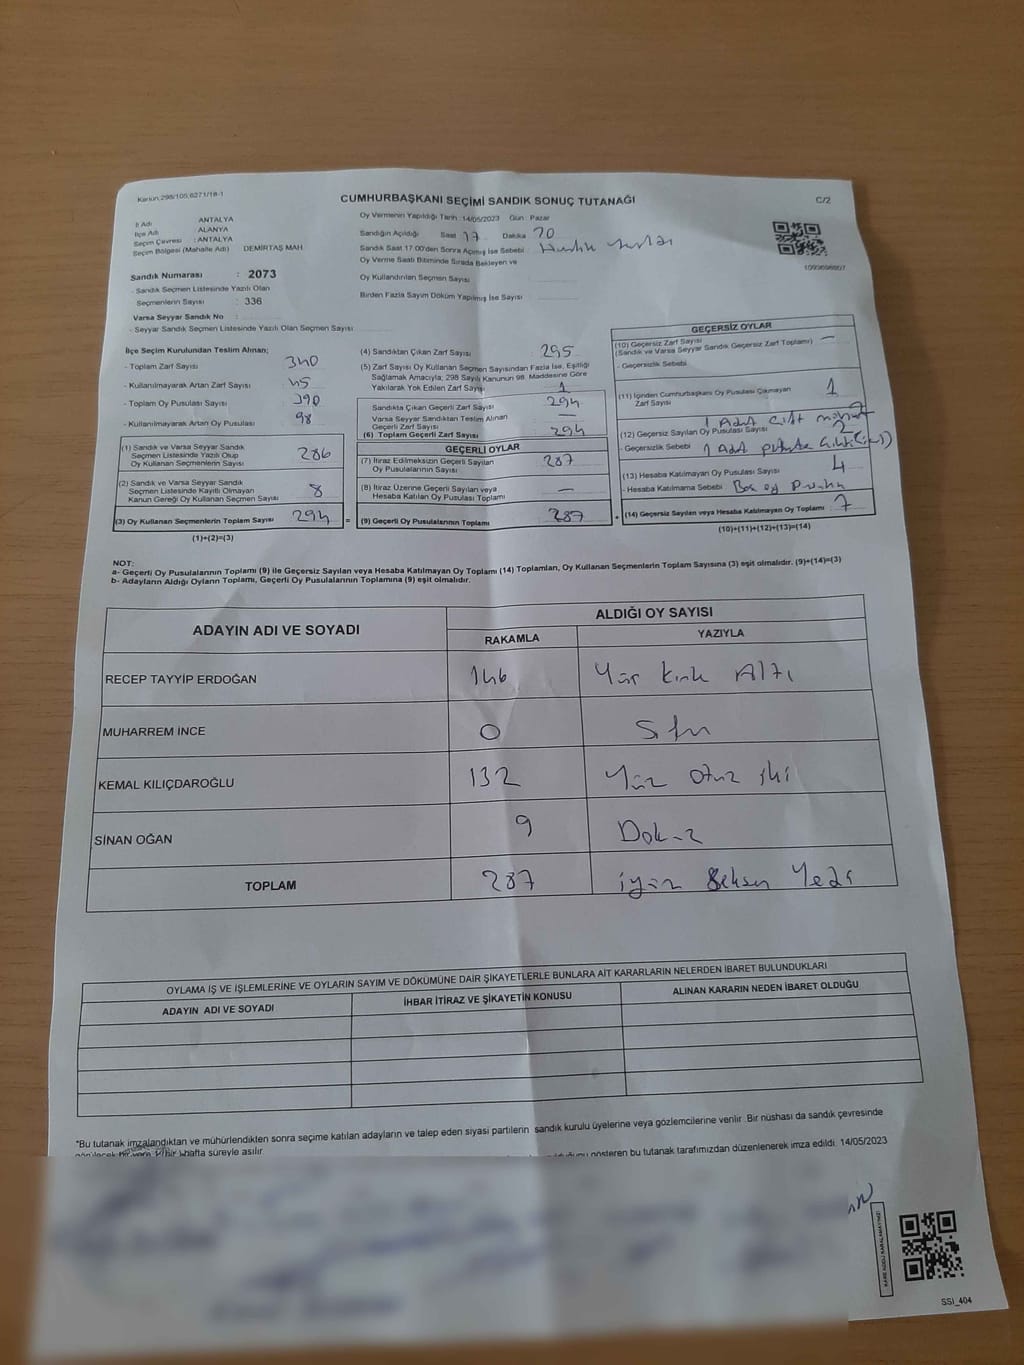 Kanun:298/105,6271/18-1
CUMHURBAŞKANI SEÇİMİ SANDIK SONUÇ TUTANAĞI
C/2
İl Adı ANTALYA
İlçe Adı : ALANYA
Seçim Çevresi : ANTALYA
Seçim Bölgesi (Mahalle Adı) DEMİRTAŞ MAH.
Sandık Numarası : 2073
- Sandık Seçmen Listesinde Yazılı Olan
Seçmenlerin Sayısı : 336
Varsa Seyyar Sandık No :
- Seyyar Sandık Seçmen Listesinde Yazılı Olan Seçmen Sayısı
Oy Vermenin Yapıldığı Tarih :14/05/2023 Gün : Pazar
Sandığın Açıldığı Saat 17 Dakika 20
Sandık Saat 17.00'den Sonra Açılmış İse Sebebi :
Oy Verme Saati Bitiminde Sırada Bekleyen ve
Oy Kullandırılan Seçmen Sayısı
Birden Fazla Sayım Döküm Yapılmış İse Sayısı
1093696607
İlçe Seçim Kurulundan Teslim Alınan;
- Toplam Zarf Sayısı : 340
- Kullanılmayarak Artan Zarf Sayısı : 45
- Toplam Oy Pusulası Sayısı : 390
- Kullanılmayarak Artan Oy Pusulası : 98
(1) Sandık ve Varsa Seyyar Sandık
Seçmen Listesinde Yazılı Olup
Oy Kullanan Seçmenlerin Sayısı : 286
(2) Sandık ve Varsa Seyyar Sandık
Seçmen Listesinde Kayıtlı Olmayan
Kanun Gereği Oy Kullanan Seçmen Sayısı : 8
(3) Oy Kullanan Seçmenlerin Toplam Sayısı : 294
(1)+(2)=(3)
(4) Sandıktan Çıkan Zarf Sayısı : 295
(5) Zarf Sayısı Oy Kullanan Seçmen Sayısından Fazla İse, Eşitliği
Sağlamak Amacıyla; 298 Sayılı Kanunun 98. Maddesine Göre
Yakılarak Yok Edilen Zarf Sayısı : 1
Sandıkta Çıkan Geçerli Zarf Sayısı : 294
Varsa Seyyar Sandıktan Teslim Alınan
Geçerli Zarf Sayısı : —
(6) Toplam Geçerli Zarf Sayısı : 294
GEÇERLİ OYLAR
(7) İtiraz Edilmeksizin Geçerli Sayılan
Oy Pusulalarının Sayısı : 287
(8) İtiraz Üzerine Geçerli Sayılan veya
Hesaba Katılan Oy Pusulası Toplamı : —
= (9) Geçerli Oy Pusulalarının Toplamı : 287 +
GEÇERSİZ OYLAR
(10) Geçersiz Zarf Sayısı : —
(Sandık ve Varsa Seyyar Sandık Geçersiz Zarf Toplamı)
- Geçersizlik Sebebi
(11) İçinden Cumhurbaşkanı Oy Pusulası Çıkmayan
Zarf Sayısı : 1
1 Adet Çift mühür
(12) Geçersiz Sayılan Oy Pusulası Sayısı : 2
- Geçersizlik Sebebi : 1 Adet
(13) Hesaba Katılmayan Oy Pusulası Sayısı : 4
- Hesaba Katılmama Sebebi : Boş oy
(14) Geçersiz Sayılan veya Hesaba Katılmayan Oy Toplamı : 7
(10)+(11)+(12)+(13)=(14)
NOT:
a- Geçerli Oy Pusulalarının Toplamı (9) ile Geçersiz Sayılan veya Hesaba Katılmayan Oy Toplamı (14) Toplamları, Oy Kullanan Seçmenlerin Toplam Sayısına (3) eşit olmalıdır. (9)+(14)=(3)
b- Adayların Aldığı Oyların Toplamı, Geçerli Oy Pusulalarının Toplamına (9) eşit olmalıdır.
ADAYIN ADI VE SOYADI
ALDIĞI OY SAYISI
RAKAMLA YAZIYLA
RECEP TAYYİP ERDOĞAN 146 Yüz kırk Altı
MUHARREM İNCE 0 Sıfır
KEMAL KILIÇDAROĞLU 132 Yüz otuz iki
SİNAN OĞAN 9 Dokuz
TOPLAM 287 ikiyüz Seksen Yedi
OYLAMA İŞ VE İŞLEMLERİNE VE OYLARIN SAYIM VE DÖKÜMÜNE DAİR ŞİKAYETLERLE BUNLARA AİT KARARLARIN NELERDEN İBARET BULUNDUKLARI
ADAYIN ADI VE SOYADI İHBAR İTİRAZ VE ŞİKAYETİN KONUSU ALINAN KARARIN NEDEN İBARET OLDUĞU
*Bu tutanak imzalandıktan ve mühürlendikten sonra seçime katılan adayların ve talep eden siyasi partilerin sandık kurulu üyelerine veya gözlemcilerine verilir. Bir nüshası da sandık çevresinde
görülecek bir yere, bir hafta süreyle asılır.
gösteren bu tutanak tarafımızdan düzenlenerek imza edildi. 14/05/2023
KARE KODU KARALAMAYINIZ!
SSİ_404